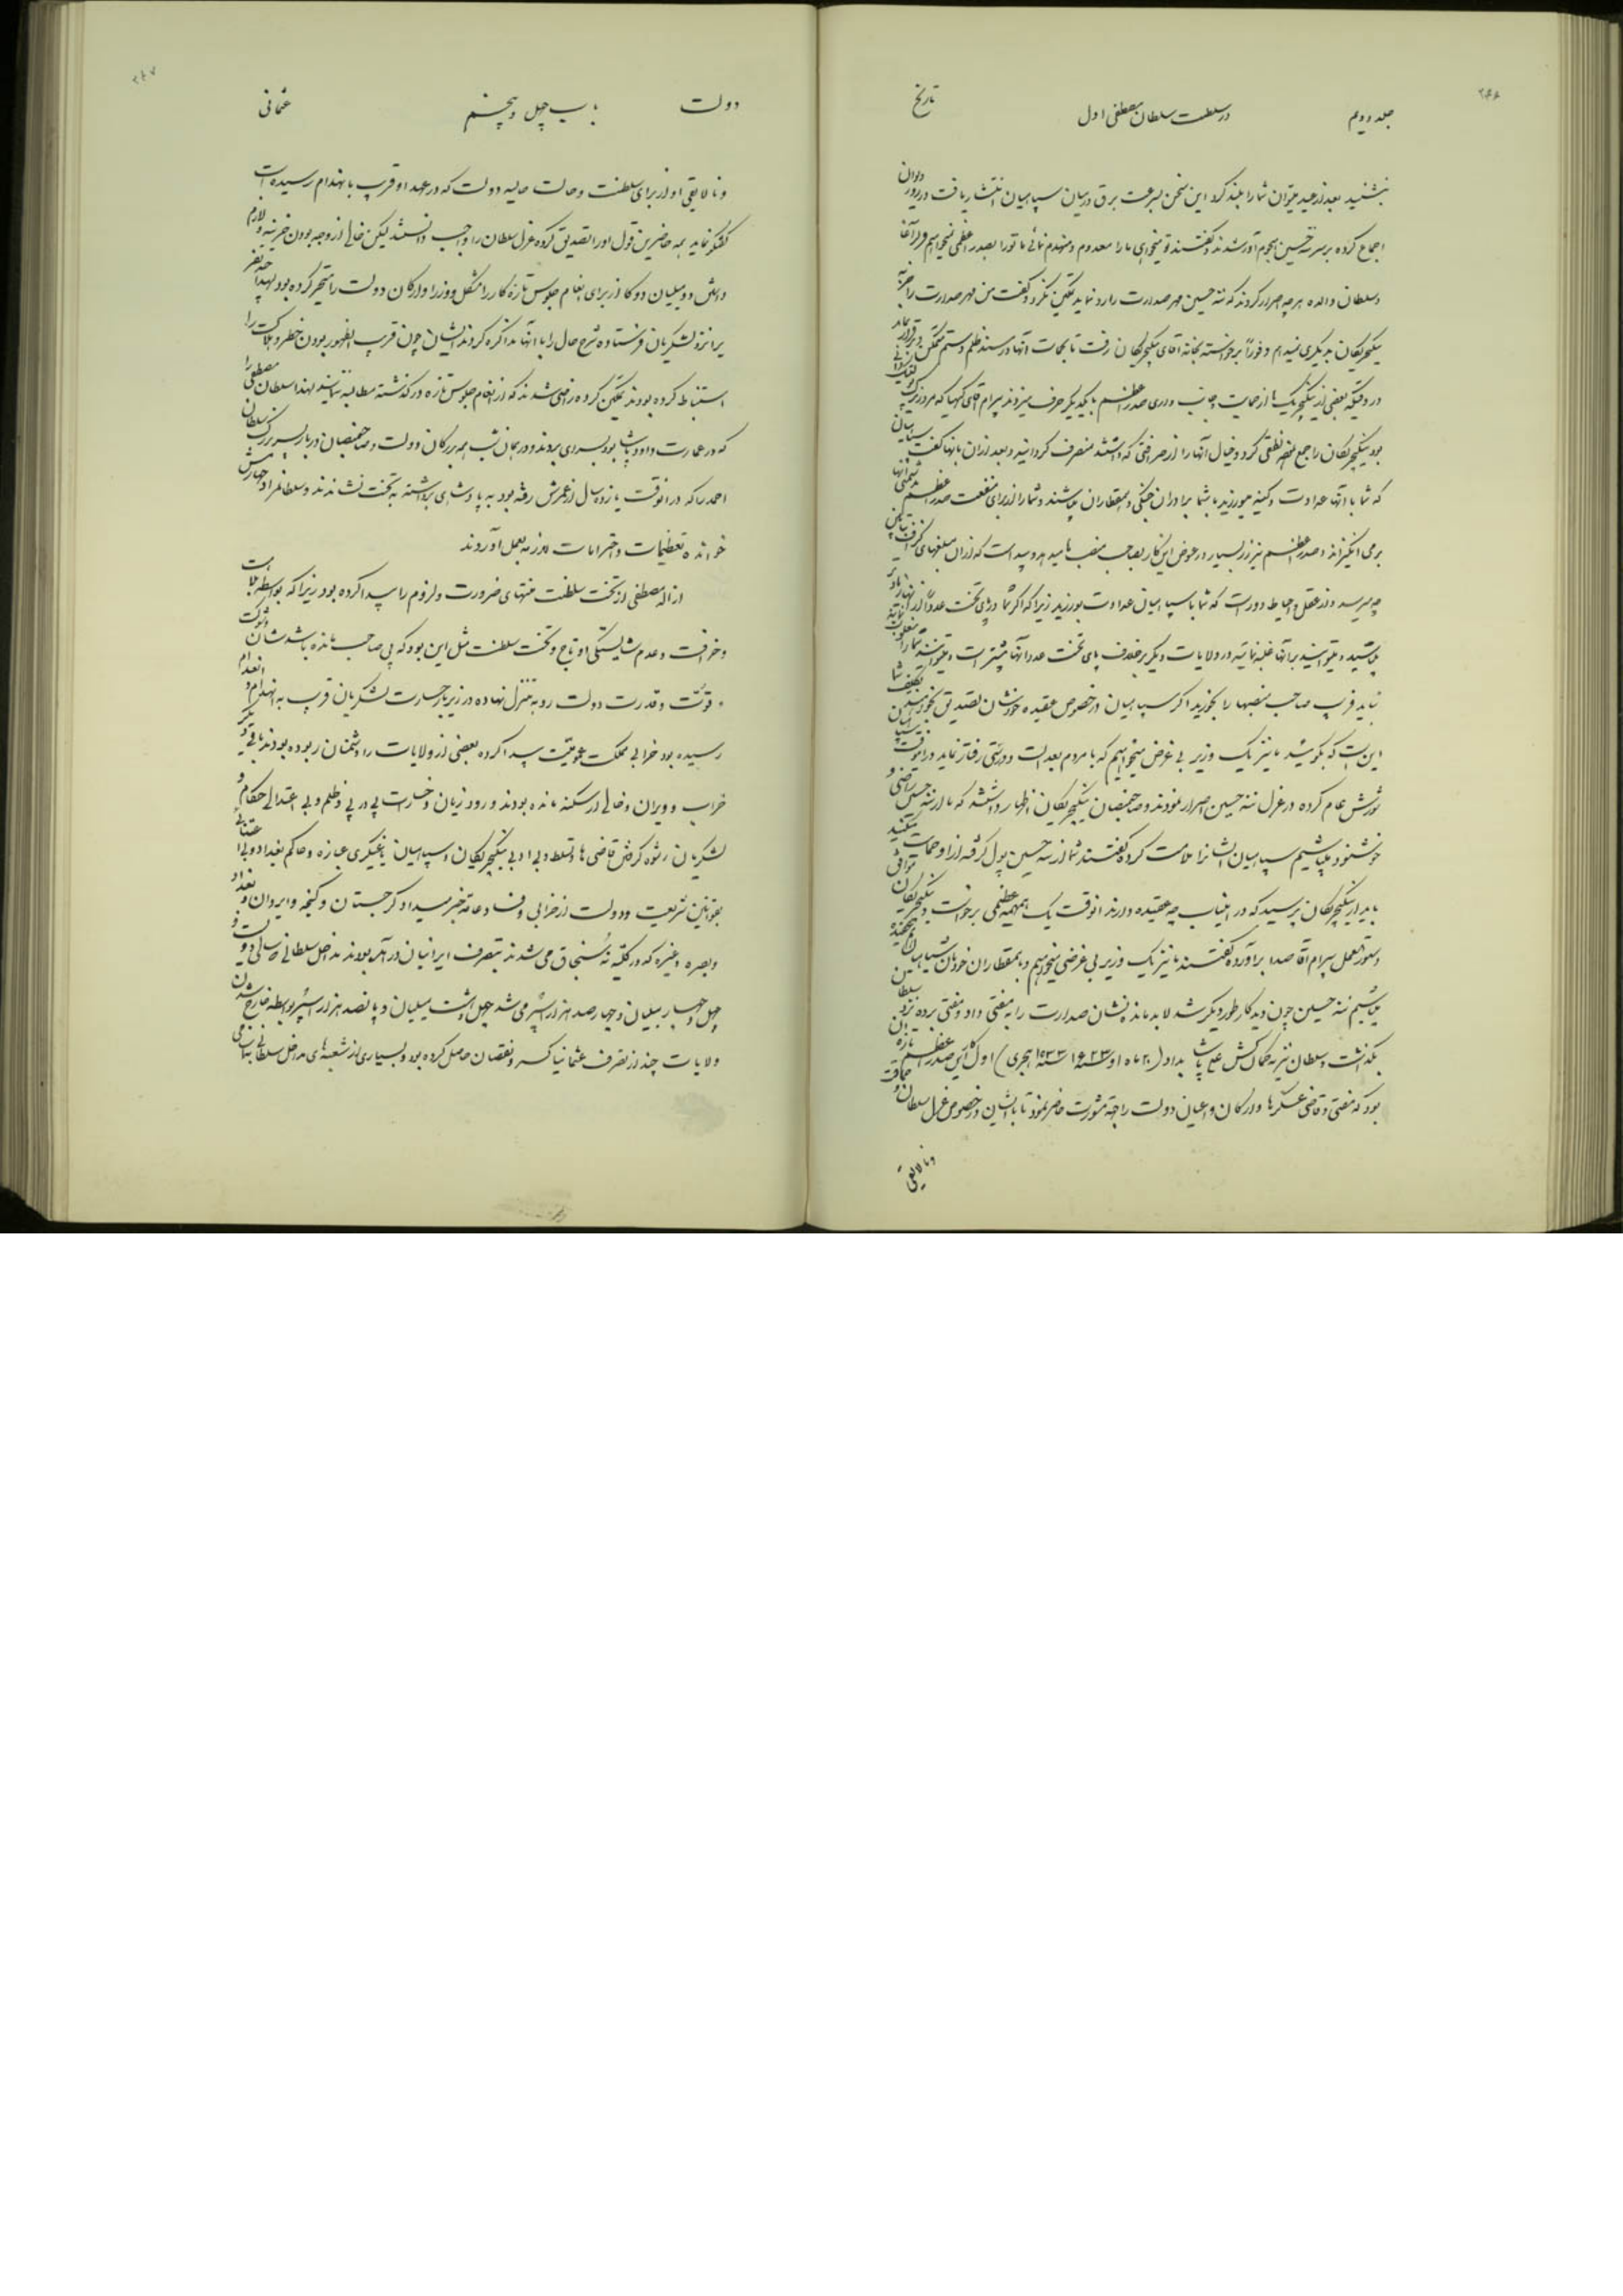 ۲۶۶
جلد دویم
در سلطنت سلطان مصطفی اول
تاریخ
بنشینید بعد از عید میتوان شما را بلند کرد این سخن بسرعت برق در میان سپاهیان انتشار یافت در روز دیوان
اجماع کرده بر سر ننه حسین هجوم آور شدند و گفتند تو میخواهی ما را معدوم و منهدم نمائی ما تو را بصدر اعظمی نمیخواهیم
و سلطان والده هر چه اصرار کردند که ننه حسین مهر صدارت را رد نماید تمکین نکرد و گفت من مهر صدارت را جز به
ینگیچریکان بدیگری نمیدهم و فوراً برخواسته بخانه آقای ینگیچریکان رفت تا بحمایت آنها در مسند ظلم و ستم متمکن و برقرار بماند
در وقتیکه بعضی از ینگیچریک ها از حمایت و جانب داری صدر اعظم با یکدیگر حرف میزدند بیرام آقای
بود ینگیچریکان را جمع نموده نطقی کرد و خیال آنها را از طرفی که داشتند منصرف گردانید و بعد از آن بآنها گفت سپاهیان
که شما با آنها عداوت و کینه میورزید با شما برادران جنگی و همقطاران میباشند و شما را از برای منفعت صدر اعظم بدشمنی آنها
بر می انگیزانند و صدر اعظم نیز زر بسیار در عوض این کار بصاحب منصب ها میدهد و پیدا است که از آن مبلغهای
چه میرسد و از عقل و احتیاط دور است که شما با سپاهیان عداوت بورزید زیرا که اگر شما در پای تخت عدداً از آنها زیادتر
میباشید و میتوانید بر آنها غلبه نمائید در ولایات دیگر بر خلاف پای تخت عدد آنها بیشتر است و میتوانند شما را مغلوب
نمایند فریب صاحب منصبها را نخورید اگر سپاهیان در خصوص عقیده خودشان تصدیق بخواهند تکلیف شما
این است که بگوئید ما نیز یک وزیر بی غرض میخواهیم که با مردم بعدالت و درستی رفتار نماید در آنوقت
شورش عام کرده در عزل ننه حسین اصرار نمودند و صاحبمنصبان ینگیچریکان اظهار داشتند که ما از ننه حسین راضی و
خوشنود میباشیم سپاهیان ایشانرا ملامت کرده گفتند شما از ننه حسین پول گرفته از او حمایت میکنید
باید از ینگیچریکان پرسید که در اینباب چه عقیده دارند آنوقت یک همهمه عظیمی برخواست و ینگیچریکان
دستورالعمل بیرام آقا صدا برآورده گفتند ما نیز یک وزیر بی غرضی میخواهیم و با همقطاران خودمان سپاهیان
میباشیم ننه حسین چون دید کار طور دیگر شد لابد مانده نشان صدارت را به مفتی داد و مفتی برده نزد سلطان
بگذاشت و سلطان نیز به کمانکش علی پاشا بداد (۳۰ ماه اوت سنه ۱۶۲۳ سنه ۱۰۳۳ هجری) اول کار این صدر اعظم تازه آن
بود که مفتی و قاضی عسکرها و ارکان و اعیان دولت را بجهة مشورت حاضر نمود تا با ایشان در خصوص عزل سلطان و حماقت
و نالایقی
۲۶۷
دولت
باب چهل و پنجم
عثمانی
و نالایقی او از برای سلطنت و حالت حالیه دولت که در عهد او قریب بانهدام رسیده است
گفتگو نماید همه حاضرین قول او را تصدیق کرده عزل سلطان را واجب دانستند لیکن خالی از وجه بودن خزینه و لازم
داشتن دو میلیان دوکا از برای انعام جلوس تازه کار را مشکل و وزرا و ارکان دولت را متحیر کرده بود لهذا چند نفر
برا نزد لشکریان فرستاده شرح حال را با آنها مذاکره کردند ایشان چون قریب الظهور بودن خطر و هلاکت را
استنباط کرده بودند تمکین کرده راضی شدند که از انعام جلوس تازه در گذشته مطالبه ننمایند لهذا سلطان مصطفی را
که در عمارت داود پاشا بود بسرای بردند و در همان شب همه بزرگان دولت و صاحبمنصبان دربار پسر بزرگ سلطان
احمد را که در آنوقت یازده سال از عمرش رفته بود به پادشاهی برداشته به تخت نشاندند و سلطان مراد چهارمش
خوانده تعظیمات و احترامات لازمه بعمل آوردند
ازاله مصطفی از تخت سلطنت منتهای ضرورت و لزوم را پیدا کرده بود زیرا که بواسطه بلاهت
و خرافت و عدم شایستگی او تاج و تخت سلطنت مثل این بود که بی صاحب مانده باشد شأن و شوکت
و قوّت و قدرت دولت رو به تنزل نهاده در زیر بار جسارت لشکریان قریب به انهدام و انعدام
رسیده بود خرابی مملکت عمومیّت پیدا کرده بعضی از ولایات را دشمنان ربوده بودند باقی دیگر
خراب و ویران و خالی از سکنه مانده بودند ورود زیان و خسارت پی در پی و ظلم و بی اعتدالی حکام و
لشکریان رشوه گرفتن قاضی ها و تسلط و بی ادبی ینگیچریکان و سپاهیان یاغیگری عبازه و حاکم بغداد و بی اعتنائی
بقوانین شریعت و دولت از خرابی و فساد عامه خبر میداد گرجستان و گنجه و ایروان و بغداد
و بصره و غیره که در کلیّه نه سنجاق می شدند بتصرف ایرانیان در آمده بودند مداخل سلطانی سالی دویست و
چهل و چهار میلیان و چهار صد هزار اسپر می شد چهل و هشت میلیان و پانصد هزار اسپر بواسطه خارج شدن
ولایات چند از تصرف عثمانیا کسر و نقصان حاصل کرده بود و بسیاری از شعبه های مداخل سلطانی